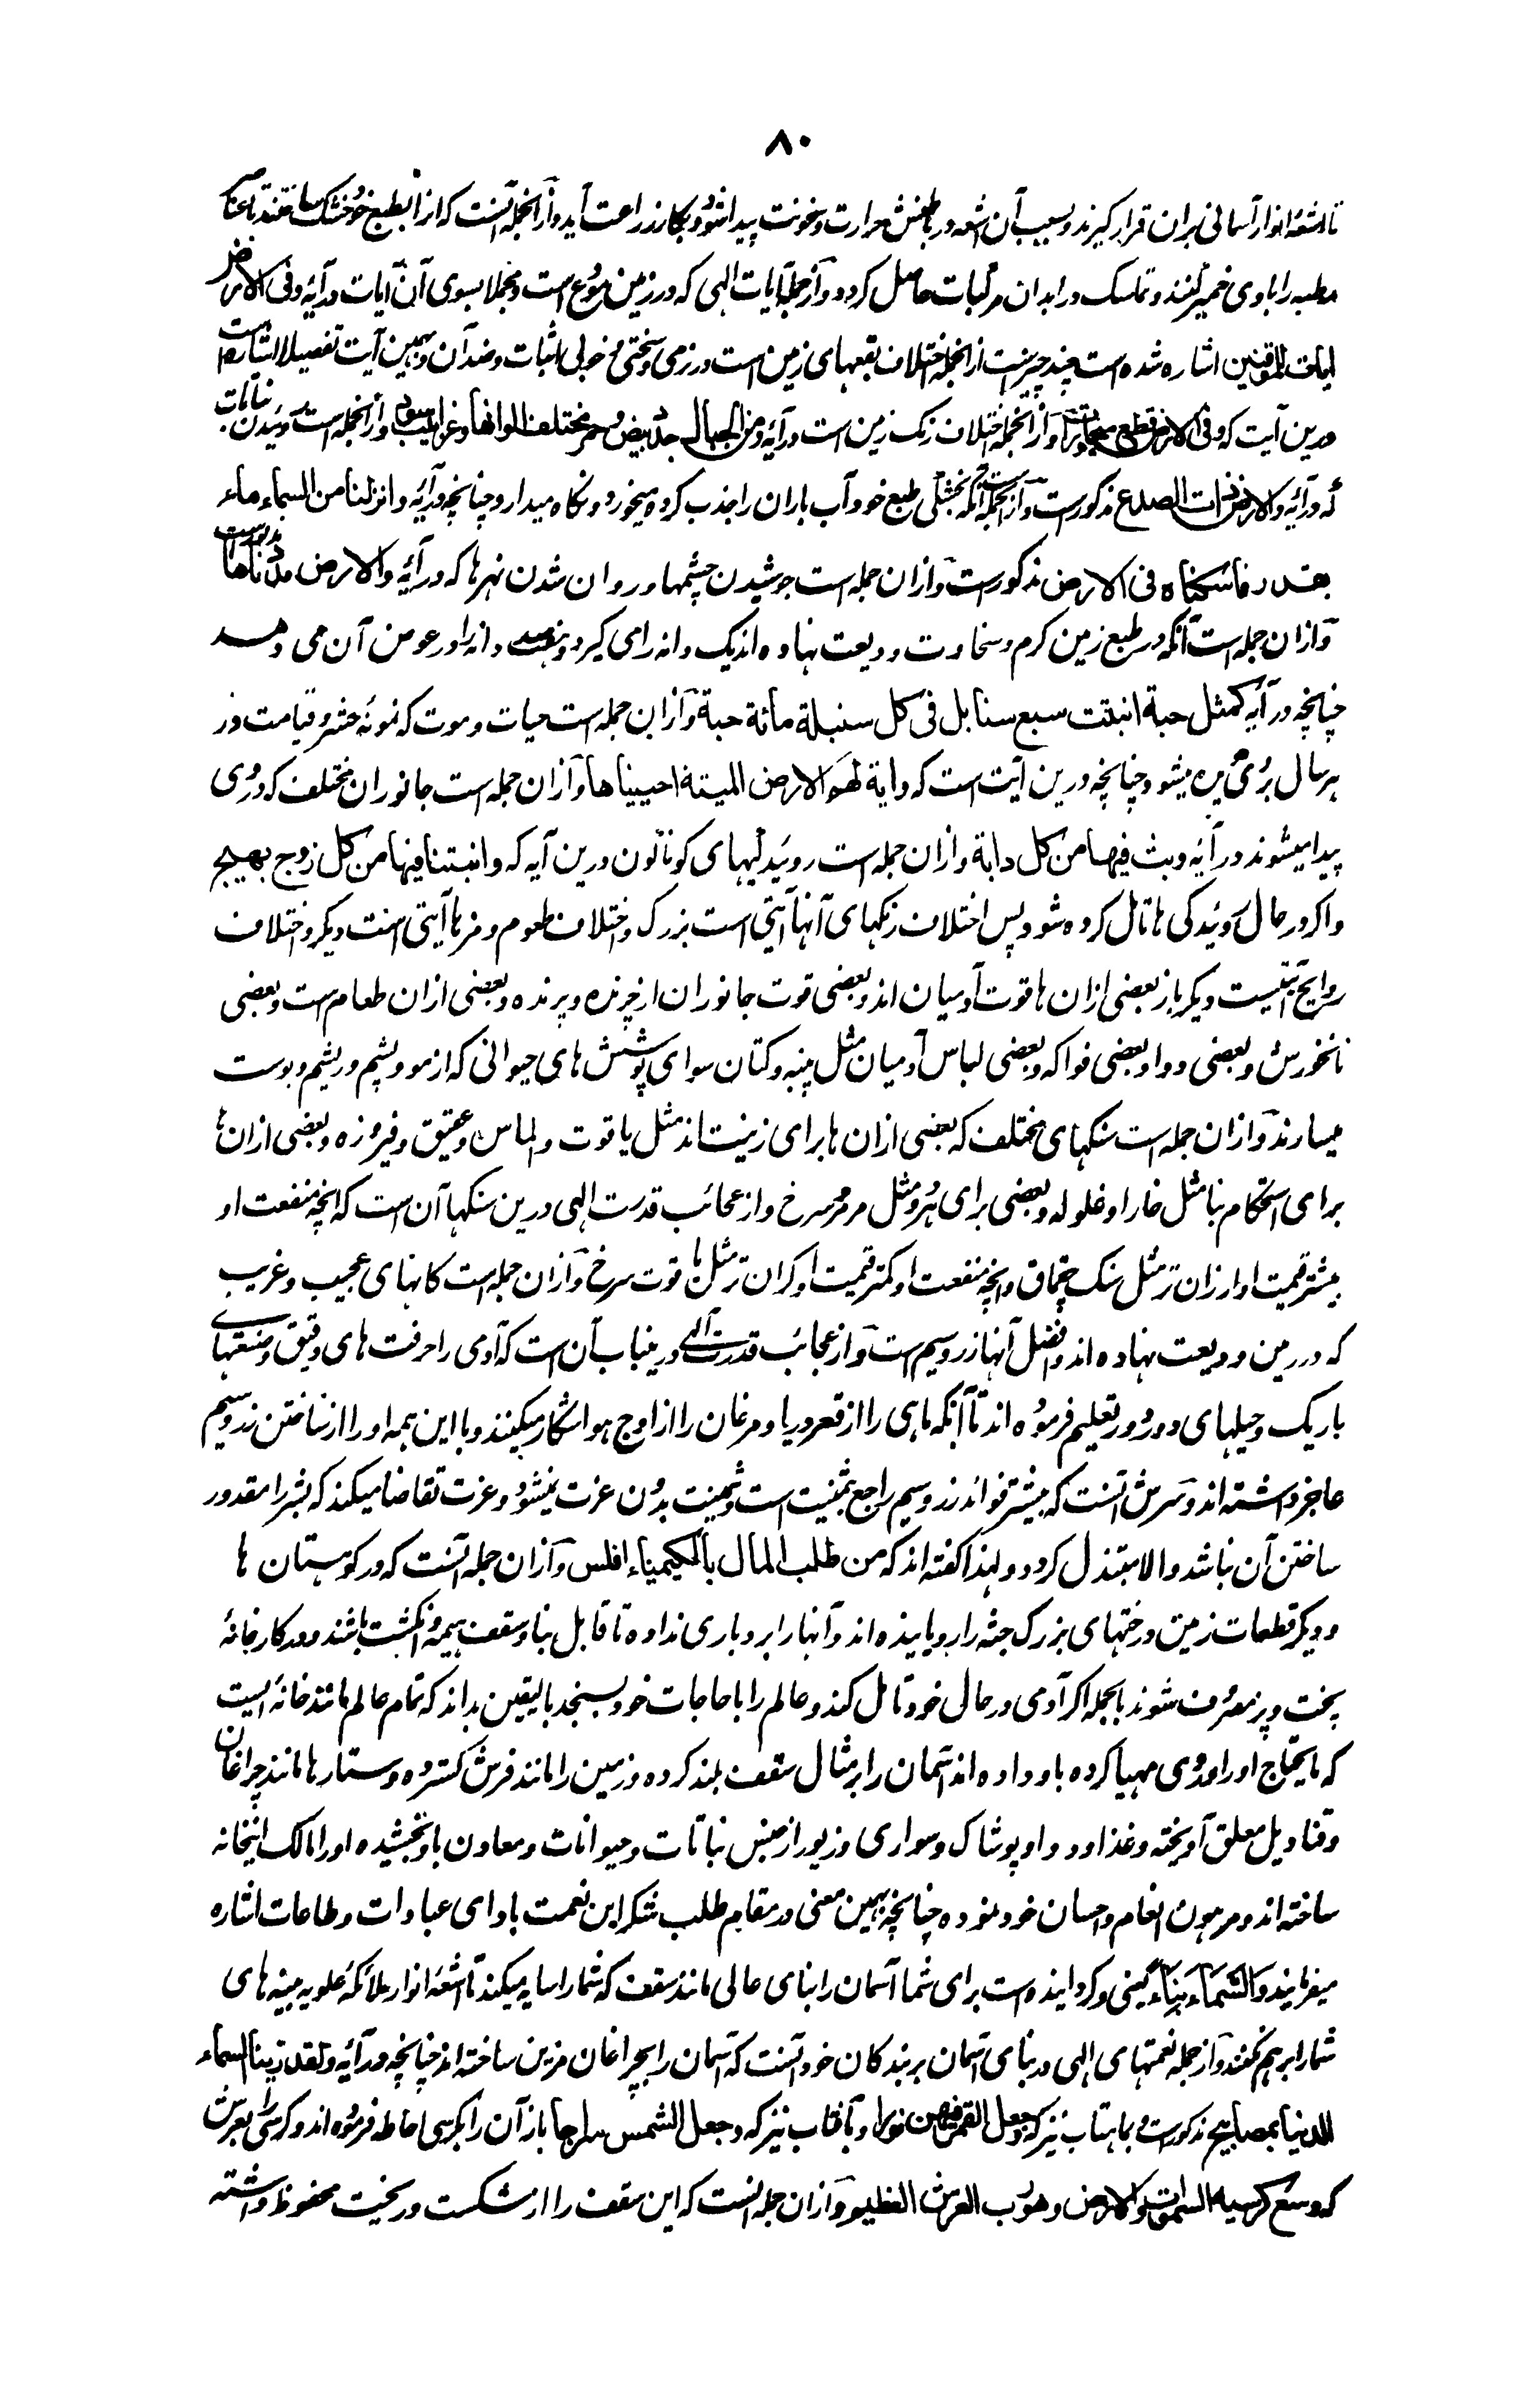 ۸۰
تا اشعهٔ انوار آسمانی بران قرار گیرند و بسبب آن اشعه در باطنش حرارت و سخونت پیدا شود و بکار زراعت آید و از انجمله آنست که انرا بطبع خود خشک ساختند تا عناصر
رطبه را با وی خمیر کنند و تماسک در ابدان مرکبات حاصل گردد و از جمله آیات الهی که در زمین موضوع است و مجملا بسوی آن آیات در آیه وفی الارض
ایات للموقنین اشاره شده است چند چیز است از انجمله اختلاف بقعهای زمین است در نرمی و سختی و خوبی انبات و ضد آن و بهمین آیت تفصیلا اشاره است
درین آیت که وفی الارض قطع متجاورات و از انجمله اختلاف رنگ زمین است در آیه ومن الجبال جدد بیض وحمر مختلف الوانها وغرابیب سود و از انجمله است روئیدن نباتات
که در آیه والارض ذات الصدع مذکور است و از انجمله است آنکه بخشکی طبع خود آب باران را جذب کرده میخورد و نگاه میدارد چنانچه در آیه وانزلنا من السماء ماء
بقدر فاسکناه فی الارض مذکور است و ازان جمله است جوشیدن چشمها و روان شدن نهرها که در آیه والارض مددناها بدوست
و ازان جمله است آنکه در طبع زمین کرم و سخاوت ودیعت نهاده اند یک دانه را می گیرد و هفتصد دانه را در عوض آن می دهد
چنانچه در آیه کمثل حبة انبتت سبع سنابل فی کل سنبلة مائة حبة و ازان جمله است حیات و موت که نمونهٔ حشر و قیامت در
هر سال بروی پره میشود چنانچه درین آیت است که وایة لهم الارض المیتة احییناها و ازان جمله است جانوران مختلف که در وی
پیدا میشوند در آیه وبث فیها من کل دابة و ازان جمله است روئیدگیهای گوناگون درین آیه که وانبتنا فیها من کل زوج بهیج
و اگر در حال روئیدگی ها تامل کرده شود پس اختلاف رنگهای آنها آیتی است بزرگ و اختلاف طعوم و مزها آیتی است دیگر و اختلاف
روایح آیتیست دیگر باز بعضی ازان ها قوت آدمیان اند و بعضی قوت جانوران از چرنده و پرنده و بعضی ازان طعام است و بعضی
نانخورش و بعضی دوا و بعضی فواکه و بعضی لباس آدمیان مثل پنبه و کتان سوای پوشش های حیوانی که از مو و پشم و ریشم و پوست
میسازند و ازان جمله است سنگهای مختلف که بعضی ازان ها برای زینت اند مثل یاقوت و الماس و عقیق و فیروزه و بعضی ازان ها
برای استحکام بنا مثل خارا و غلوله و بعضی برای هر دو مثل مرمر سرخ و از عجائب قدرت الهی درین سنگها آن است که انچه منفعت او
بیشتر قیمت او ارزان تر مثل سنگ چقماق و انچه منفعت او کمتر قیمت او گران تر مثل یاقوت سرخ و ازان جمله است کانهای عجیب و غریب
که در زمین ودیعت نهاده اند و افضل آنها زر و سیم است و از عجائب قدرت الهی درینباب آن است که آدمی را حرفت های دقیق و صنعتهای
باریک و حیلهای دور دور تعلیم فرموده اند تا آنکه ماهی را از قعر دریا و مرغان را از اوج هوا شکار میکنند و با این همه او را از ساختن زر و سیم
عاجز داشته اند و سرش آنست که بیشتر فوائد زر و سیم راجع بثمنیت است و ثمنیت بدون عزت نمیشود و عزت تقاضا میکند که بشر را مقدور
ساختن آن نباشد والا مبتذل گردد و لهذا گفته اند که من طلب المال بالکیمیاء افلس و ازان جمله آنست که در کوهستان ها
و دیگر قطعات زمین درختهای بزرگ جثه را رویانیده اند و آنها را بر و باری نداده تا قابل بنا و سقف و هیمه و انگشت باشند و در کارخانهٔ
پخت و پز مصرف شوند بالجمله اگر آدمی در حال خود تامل کند و عالم را با حاجات خود بسنجد بالیقین بداند که تمام عالم مانند خانهٔ ایست
که مایحتاج او را در وی مهیا کرده باو داده اند آسمان را بر مثال سقف بلند کرده و زمین را مانند فرش گسترده و ستارها مانند چراغان
و قنادیل معلق آویخته و غذا و دوا و پوشاک و سواری و زیور از جنس نباتات و حیوانات و معادن باو بخشیده او را مالک اینخانه
ساخته اند و مرهون انعام و احسان خود نموده چنانچه بهمین معنی در مقام طلب شکر این نعمت بادای عبادات و طاعات اشاره
میفرمایند والسماء بناء یعنی و گردانیده است برای شما آسمان را بنای عالی مانند سقف که شما را سایه میکند تا اشعهٔ انوار ملائکهٔ علویه بینه های
شما را برهم نکنند و از جمله نعمتهای الهی در بنای آسمان بر بندگان خود آنست که آسمان را بچراغان مزین ساخته اند چنانچه در آیه ولقد زینا السماء
الدنیا بمصابیح مذکور است و بماهتاب نیز که وجعل القمر فیهن نورا و بآفتاب نیز که وجعل الشمس سراجا باز آن را بکرسی احاطه فرموده اند و کرسی را بعرش
که وسع کرسیه السموات والارض وهو رب العرش العظیم و ازان جمله آنست که این سقف را از شکست و ریخت محفوظ داشته